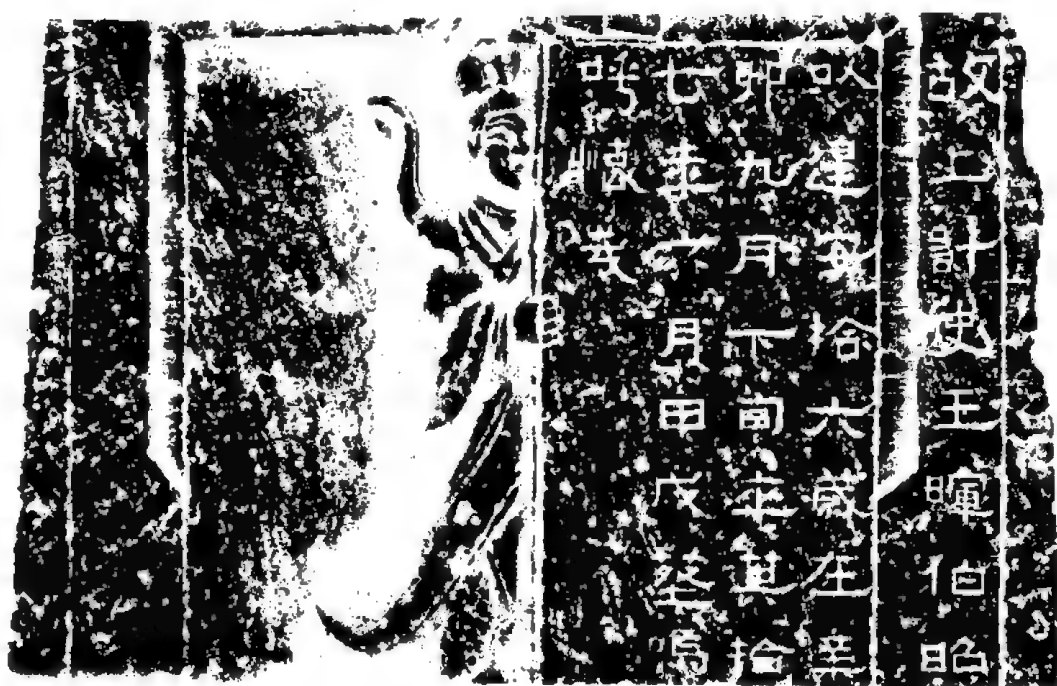 故上計史王暉伯昭
以建安拾六歲在辛
卯九月下旬卒其拾
七年六月甲戌塟烏
呼懷哉